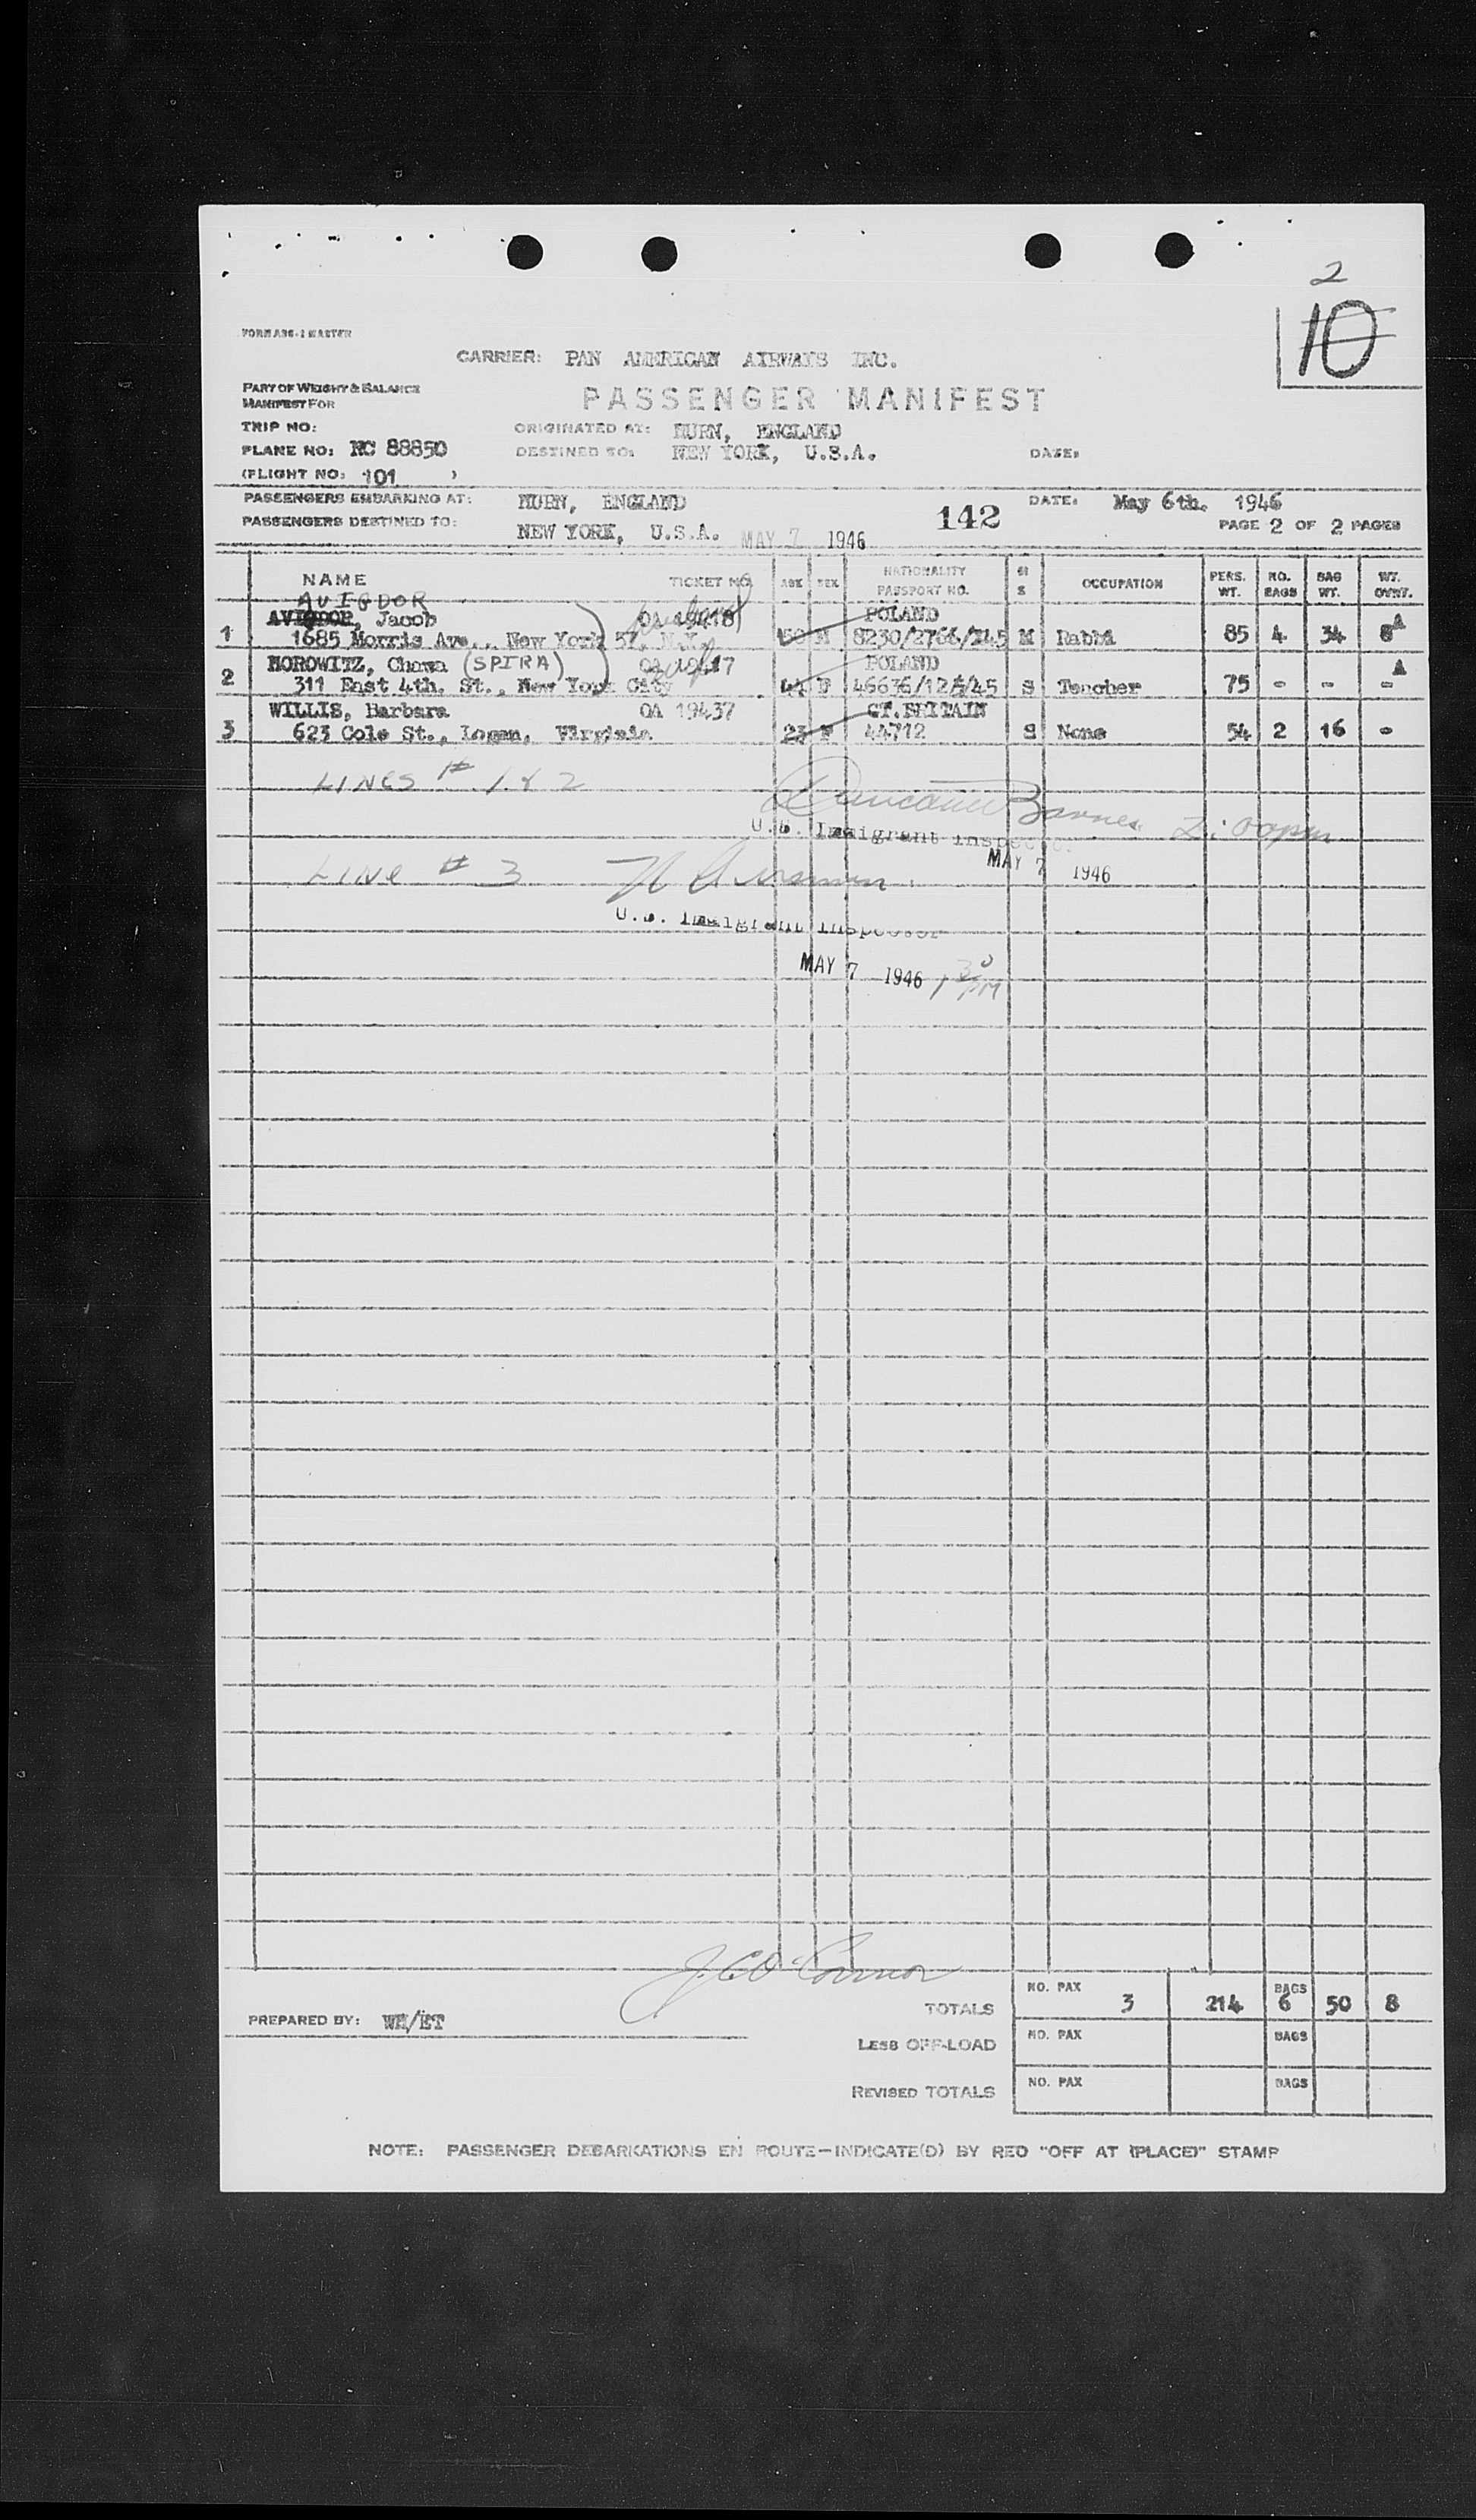 2
10
FORM ABG-1 MASTER
CARRIER: PAN AMERICAN AIRWAYS INC.
PART OF WEIGHT & BALANCE
MANIFEST FOR
PASSENGER MANIFEST
TRIP NO:
ORIGINATED AT: HURN, ENGLAND
PLANE NO: NC 88850
DESTINED TO: NEW YORK, U.S.A. DATE:
(FLIGHT NO: 101 )
PASSENGERS EMBARKING AT: HURN, ENGLAND DATE: May 6th. 1946
142
PASSENGERS DESTINED TO: NEW YORK, U.S.A. MAY 7 1946 PAGE 2 OF 2 PAGES
NAME TICKET NO. AGE SEX NATIONALITY PASSPORT NO. M S OCCUPATION PERS. WT. NO. BAGS BAG WT. WT. OVWT.
AVIGDOR
1 AVIGDOR, Jacob OA 19418 POLAND
1685 Morris Ave., New York 57, N.Y. 50 M 8230/2766/245 M Rabbi 85 4 34 8
2 HOROWITZ, Chawa (SPIRA) OA 19417 POLAND
311 East 4th. St., New York City 44 F 46636/125/45 S Teacher 75 - - -
3 WILLIS, Barbara OA 19437 GT.BRITAIN
623 Cole St., Logan, Virginia 23 F 44712 S None 54 2 16 -
LINES # 1 & 2
Barnes
U.S. Immigrant Inspector
MAY 7 1946
LINE # 3
U.S. Immigrant Inspector
MAY 7 1946 1 30 PM
J.C. O'Connor
NO. PAX BAGS
TOTALS 3 214 6 50 8
PREPARED BY: WH/ET
LESS OFF-LOAD NO. PAX BAGS
REVISED TOTALS NO. PAX BAGS
NOTE: PASSENGER DEBARKATIONS EN ROUTE—INDICATE(D) BY RED "OFF AT (PLACE)" STAMP